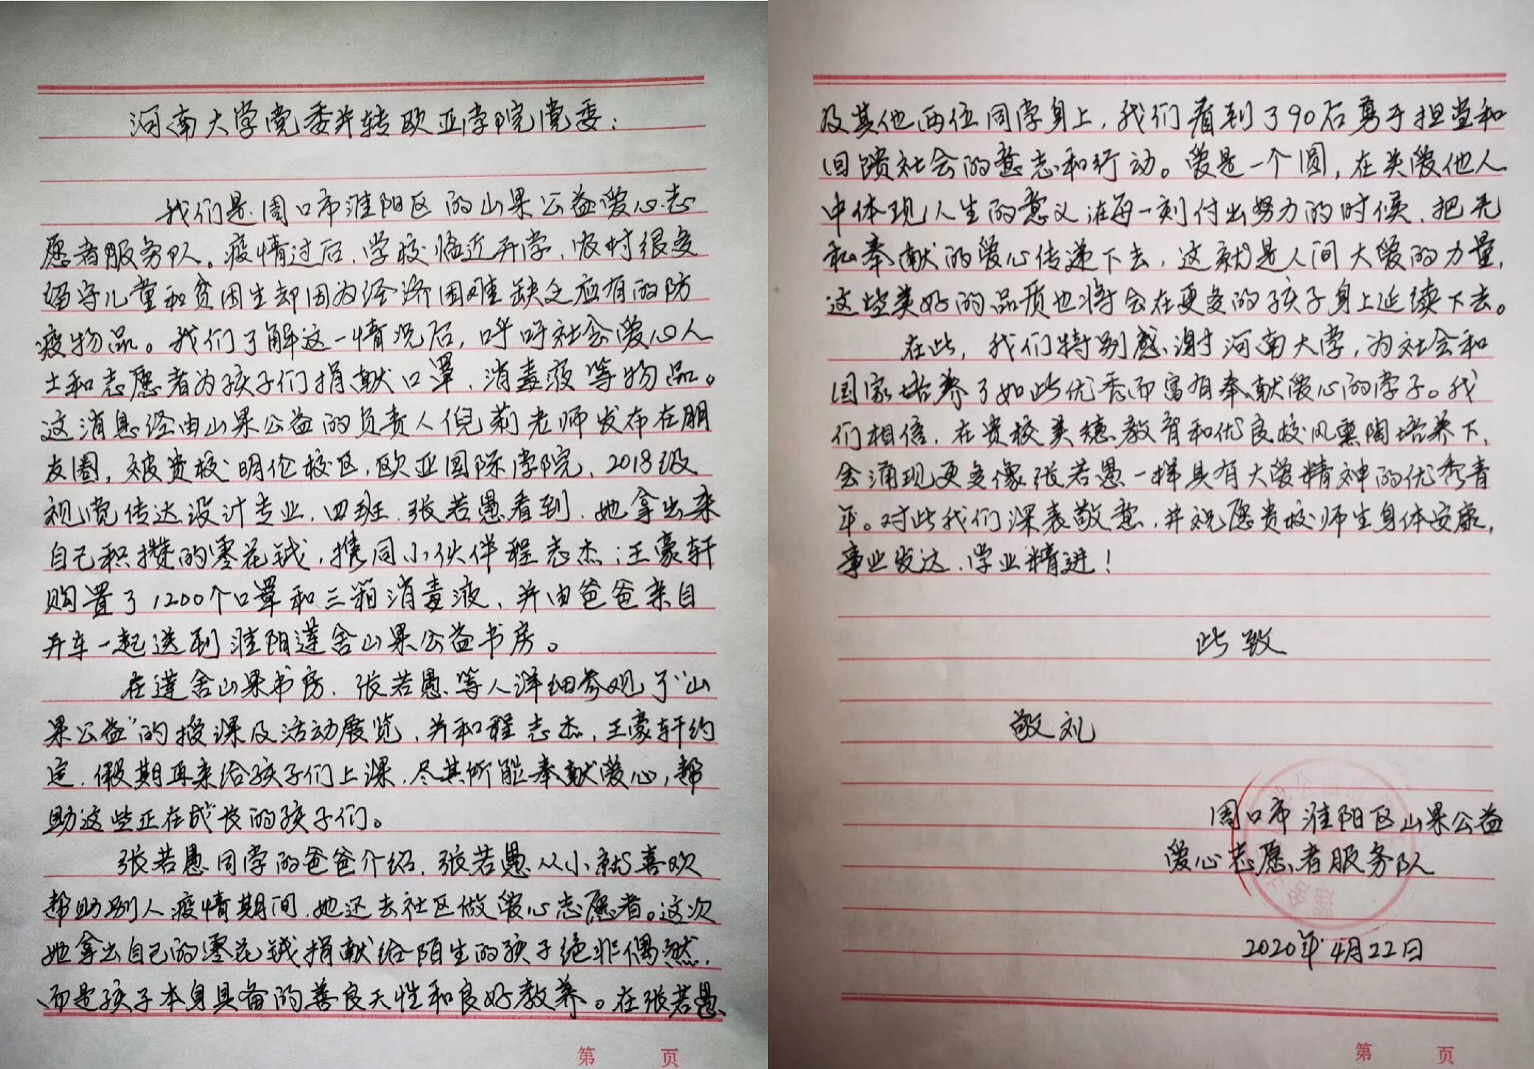 河南大学党委并转欧亚学院党委：
我们是周口市淮阳区的山果公益爱心志
愿者服务队。疫情过后，学校临近开学，彼时很多
留守儿童和贫困生却因为经济困难缺乏应有的防
疫物品。我们了解这一情况后，呼吁社会爱心人
士和志愿者为孩子们捐献口罩，消毒液等物品。
这消息经由山果公益的负责人倪莉老师发布在朋
友圈，被贵校明伦校区，欧亚国际学院，2018级
视觉传达设计专业，四班，张若愚看到，她拿出来
自己积攒的零花钱，携同小伙伴程志杰；王豪轩
购置了1200个口罩和三箱消毒液，并由爸爸亲自
开车一起送到淮阳莲舍山果公益书房。
在莲舍山果书房，张若愚等人详细参观了“山
果公益”的授课及活动展览，并和程志杰，王豪轩约
定，假期再来给孩子们上课，尽其所能奉献爱心，帮
助这些正在成长的孩子们。
张若愚同学的爸爸介绍，张若愚从小就喜欢
帮助别人疫情期间，她还去社区做爱心志愿者。这次
她拿出自己的零花钱捐献给陌生的孩子绝非偶然，
而是孩子本身具备的善良天性和良好教养。在张若愚
第 页
及其他两位同学身上，我们看到了90后勇于担当和
回馈社会的意志和行动。爱是一个圆，在关爱他人
中体现人生的意义在每一刻付出努力的时候，把无
私奉献的爱心传递下去，这就是人间大爱的力量，
这些美好的品质也将会在更多的孩子身上延续下去。
在此，我们特别感谢河南大学，为社会和
国家培养了如此优秀而富有奉献爱心的学子。我
们相信，在贵校美德教育和优良校风熏陶培养下，
会涌现更多像张若愚一样具有大爱精神的优秀青
年。对此我们深表敬意，并祝愿贵校师生身体安康，
事业发达，学业精进！
此致
敬礼
周口市淮阳区山果公益
爱心志愿者服务队
2020年4月22日
第 页